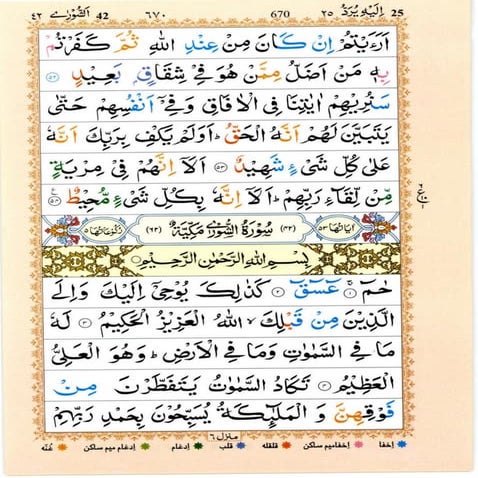 اِلَيْهِ يُرَدُّ ٢٥ 25 670 ٦٧٠ الشُّوْرٰى ٤٢ 42
اَرَءَيْتُمْ اِنْ كَانَ مِنْ عِنْدِ اللّٰهِ ثُمَّ كَفَرْتُمْ
بِهٖ مَنْ اَضَلُّ مِمَّنْ هُوَ فِيْ شِقَاقٍۭ بَعِيْدٍ ٥٢
سَنُرِيْهِمْ اٰيٰتِنَا فِي الْاٰفَاقِ وَفِيْٓ اَنْفُسِهِمْ حَتّٰى
يَتَبَيَّنَ لَهُمْ اَنَّهُ الْحَقُّ ؕ اَوَلَمْ يَكْفِ بِرَبِّكَ اَنَّهٗ
عَلٰى كُلِّ شَيْءٍ شَهِيْدٌ ٥٣ اَلَآ اِنَّهُمْ فِيْ مِرْيَةٍ
مِّنْ لِّقَآءِ رَبِّهِمْ ؕ اَلَآ اِنَّهٗ بِكُلِّ شَيْءٍ مُّحِيْطٌ ٥٤
اٰيَاتُهَا ٥٣ (٤٢) سُوْرَةُ الشُّوْرٰى مَكِّيَّةٌ (٦٢) رُكُوْعَاتُهَا ٥
بِسْمِ اللّٰهِ الرَّحْمٰنِ الرَّحِيْمِ
حٰمٓ ١ عٓسٓقٓ ٢ كَذٰلِكَ يُوْحِيْٓ اِلَيْكَ وَاِلَى
الَّذِيْنَ مِنْ قَبْلِكَ ۙ اللّٰهُ الْعَزِيْزُ الْحَكِيْمُ ٣ لَهٗ
مَا فِي السَّمٰوٰتِ وَمَا فِي الْاَرْضِ ؕ وَهُوَ الْعَلِيُّ
الْعَظِيْمُ ٤ تَكَادُ السَّمٰوٰتُ يَتَفَطَّرْنَ مِنْ
فَوْقِهِنَّ وَ الْمَلٰٓئِكَةُ يُسَبِّحُوْنَ بِحَمْدِ رَبِّهِمْ
منزل ٦
اخفا اخفامیم ساکن قلقله قلب ادغام ادغام میم ساکن غنّه